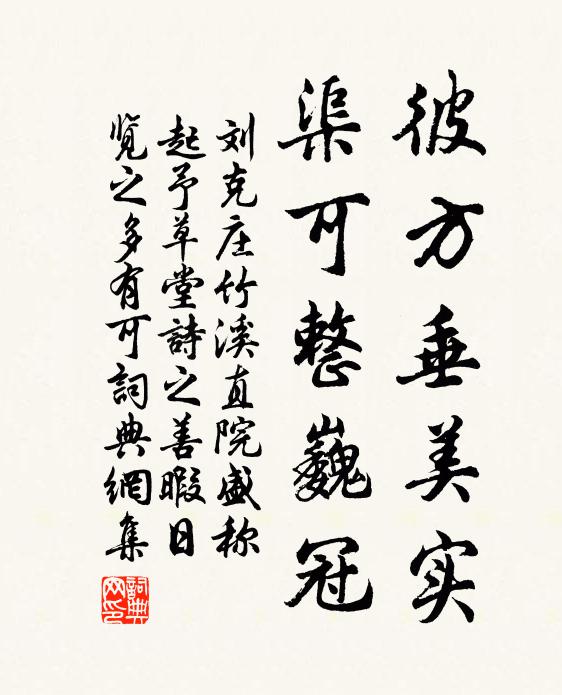 彼方垂美实
渠可整巍冠
刘克庄竹溪直院盛称
起予草堂詩之善暇日
览之多有可詞典網集
詞典网印